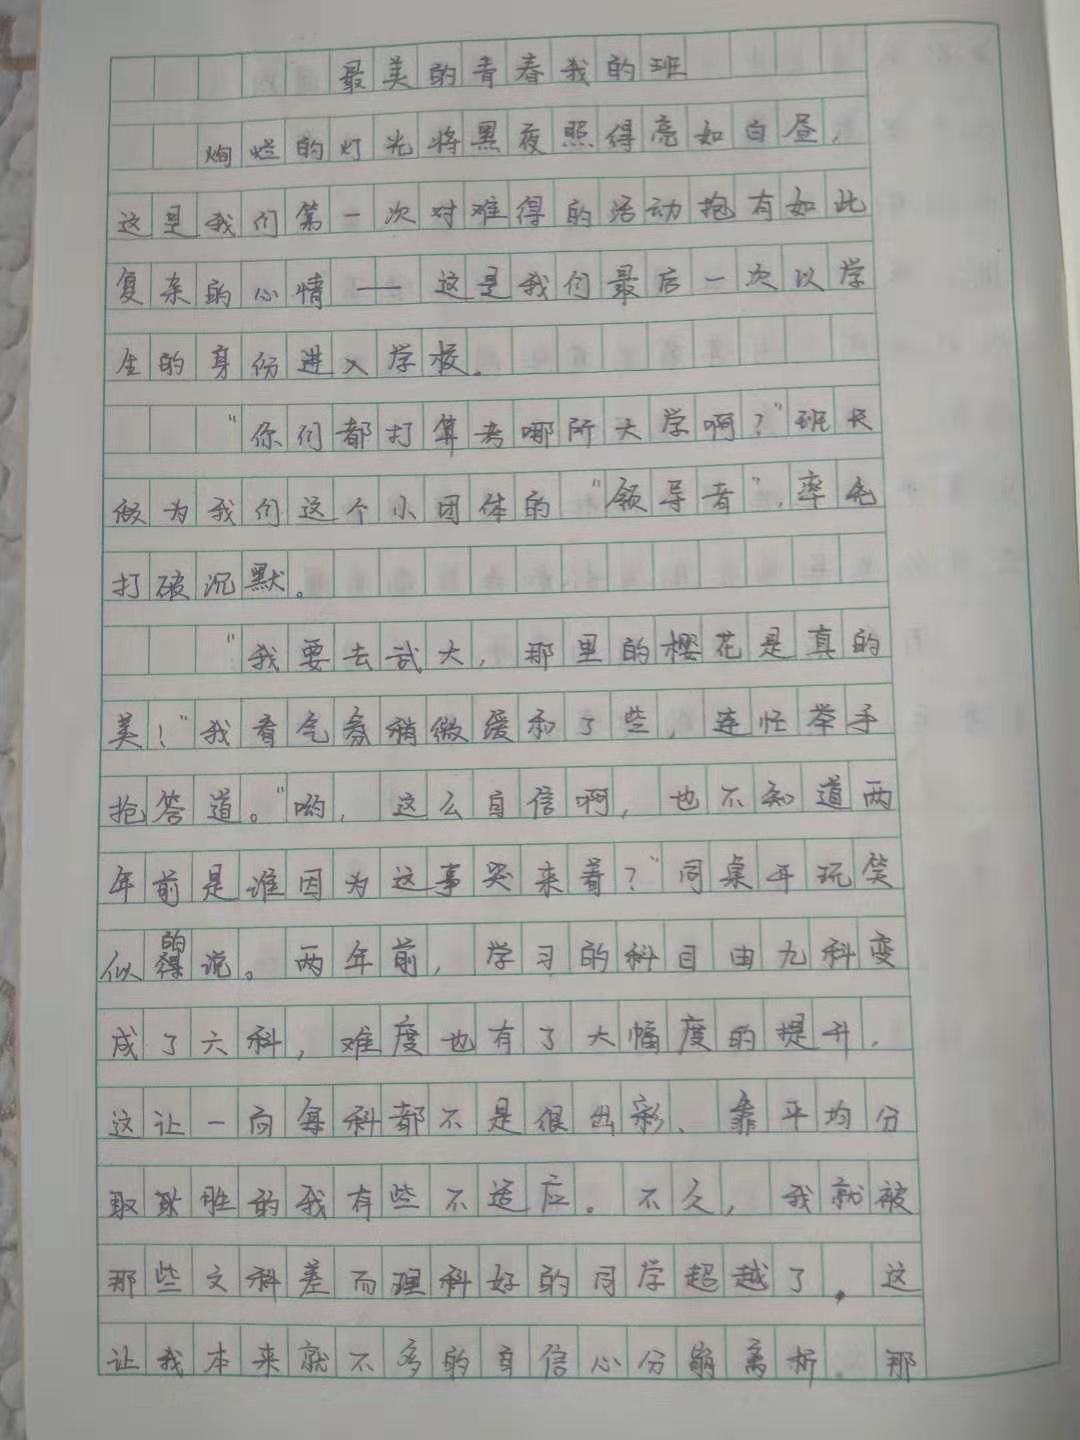 最美的青春我的班
绚烂的灯光将黑夜照得亮如白昼，
这是我们第一次对难得的活动抱有如此
复杂的心情——这是我们最后一次以学
生的身份进入学校。
“你们都打算考哪所大学啊？”班长
做为我们这个小团体的“领导者”，率先
打破沉默。
“我要去武大，那里的樱花是真的
美！”我看气氛稍微缓和了些，连忙举手
抢答道。“哟，这么自信啊，也不知道两
年前是谁因为这事哭来着？”同桌开玩笑
似的说。两年前，学习的科目由九科变
成了六科，难度也有了大幅度的提升，
这让一向每科都不是很出彩、靠平均分
取胜的我有些不适应。不久，我就被
那些文科差而理科好的同学超越了，这
让我本来就不多的自信心分崩离析。那